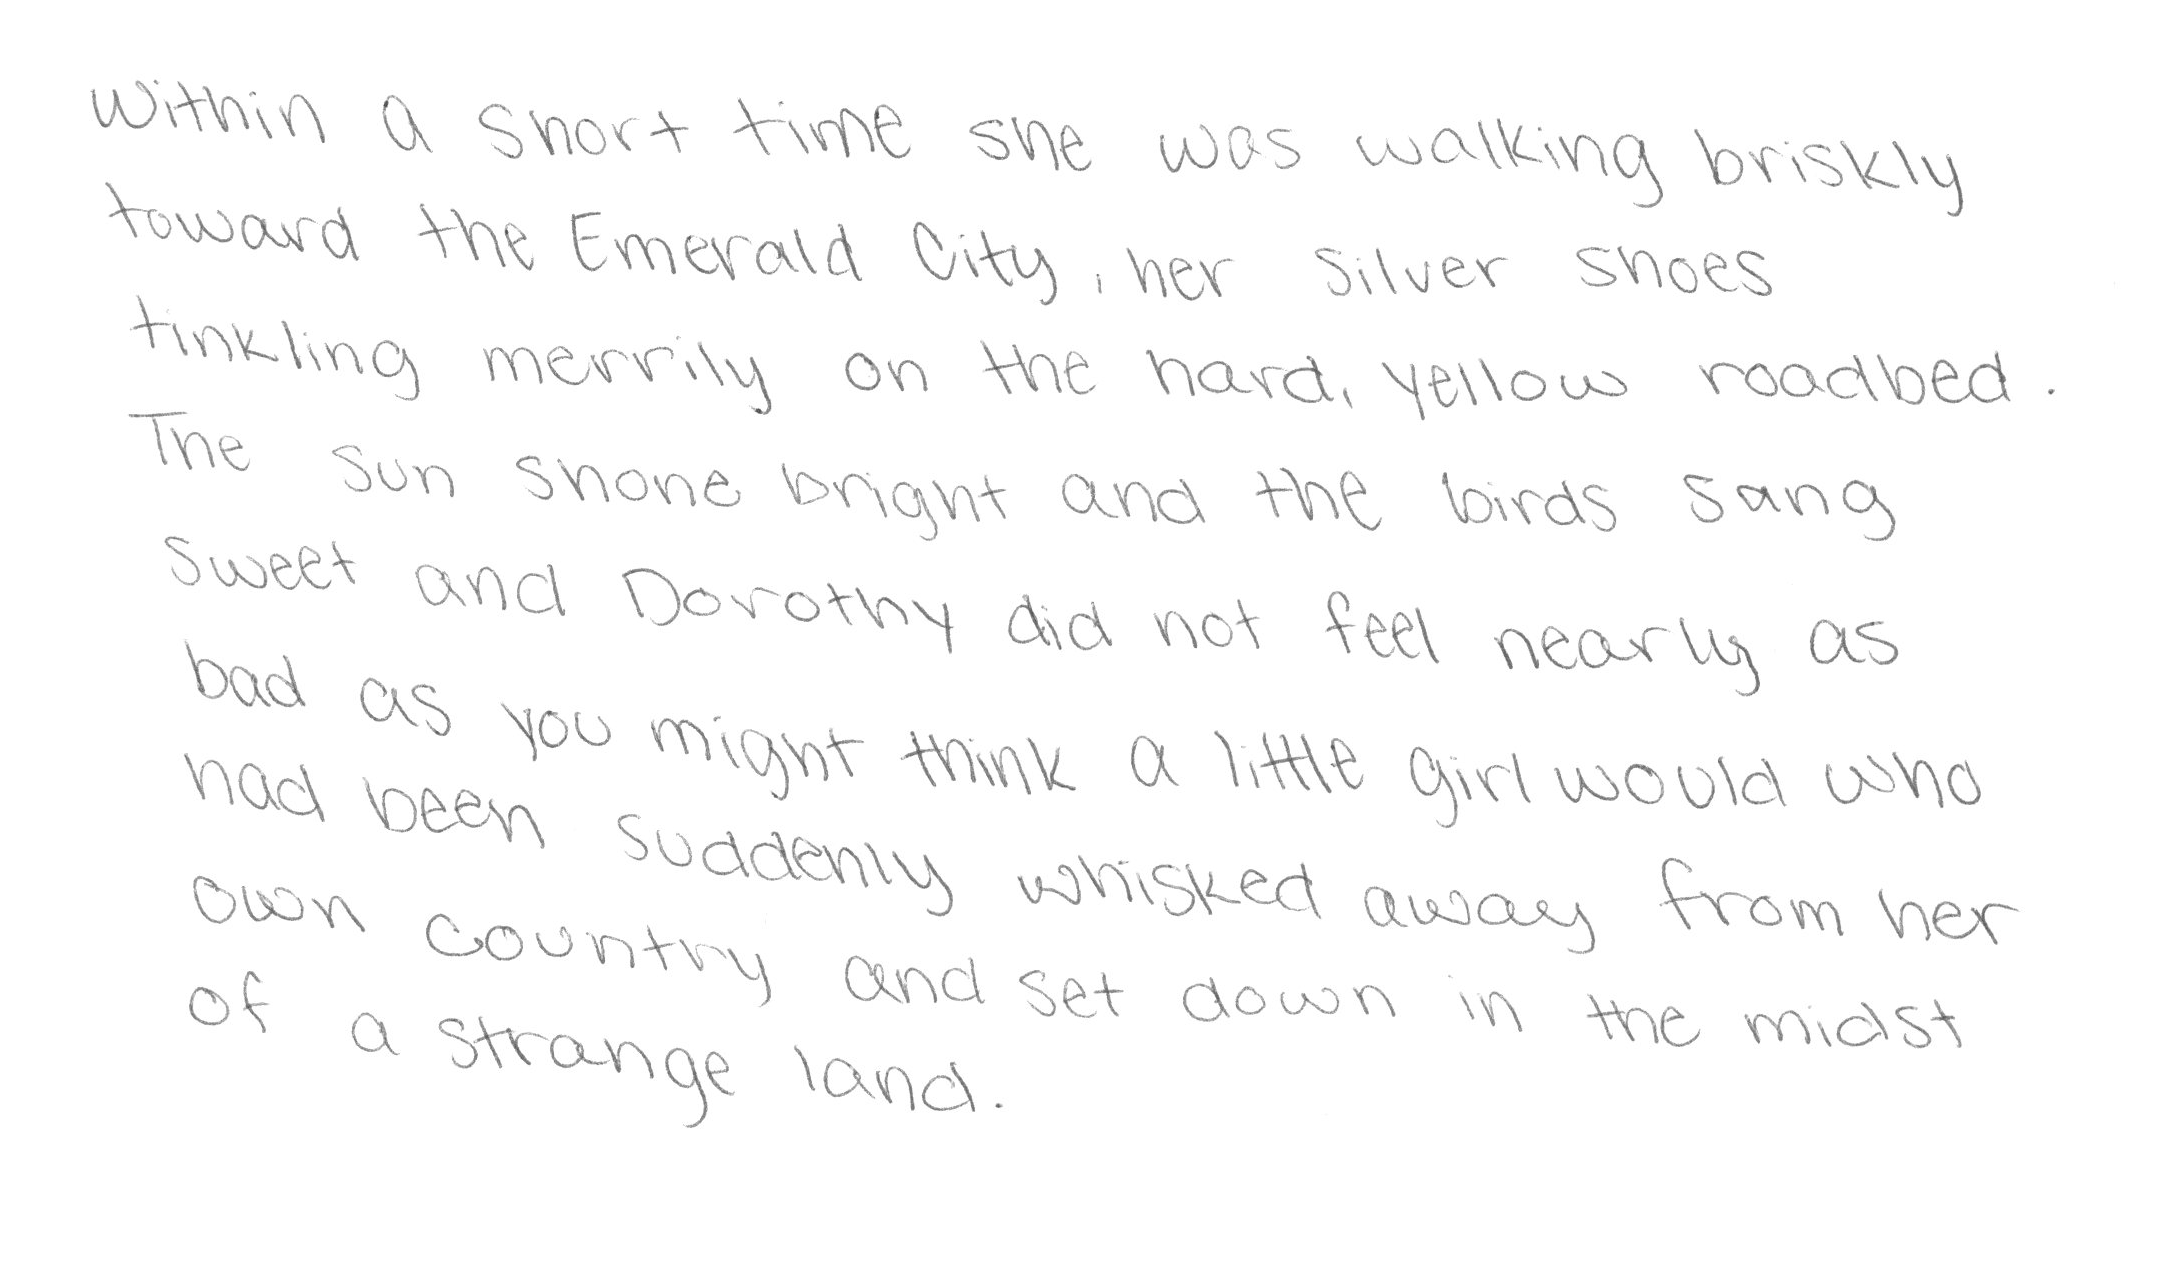 Within a short time she was walking briskly
toward the Emerald City, her Silver Shoes
tinkling merrily on the hard, yellow roadbed.
The sun shone bright and the birds sang
sweet and Dorothy did not feel nearly as
bad as you might think a little girl would who
had been suddenly whisked away from her
own country and set down in the midst
of a strange land.